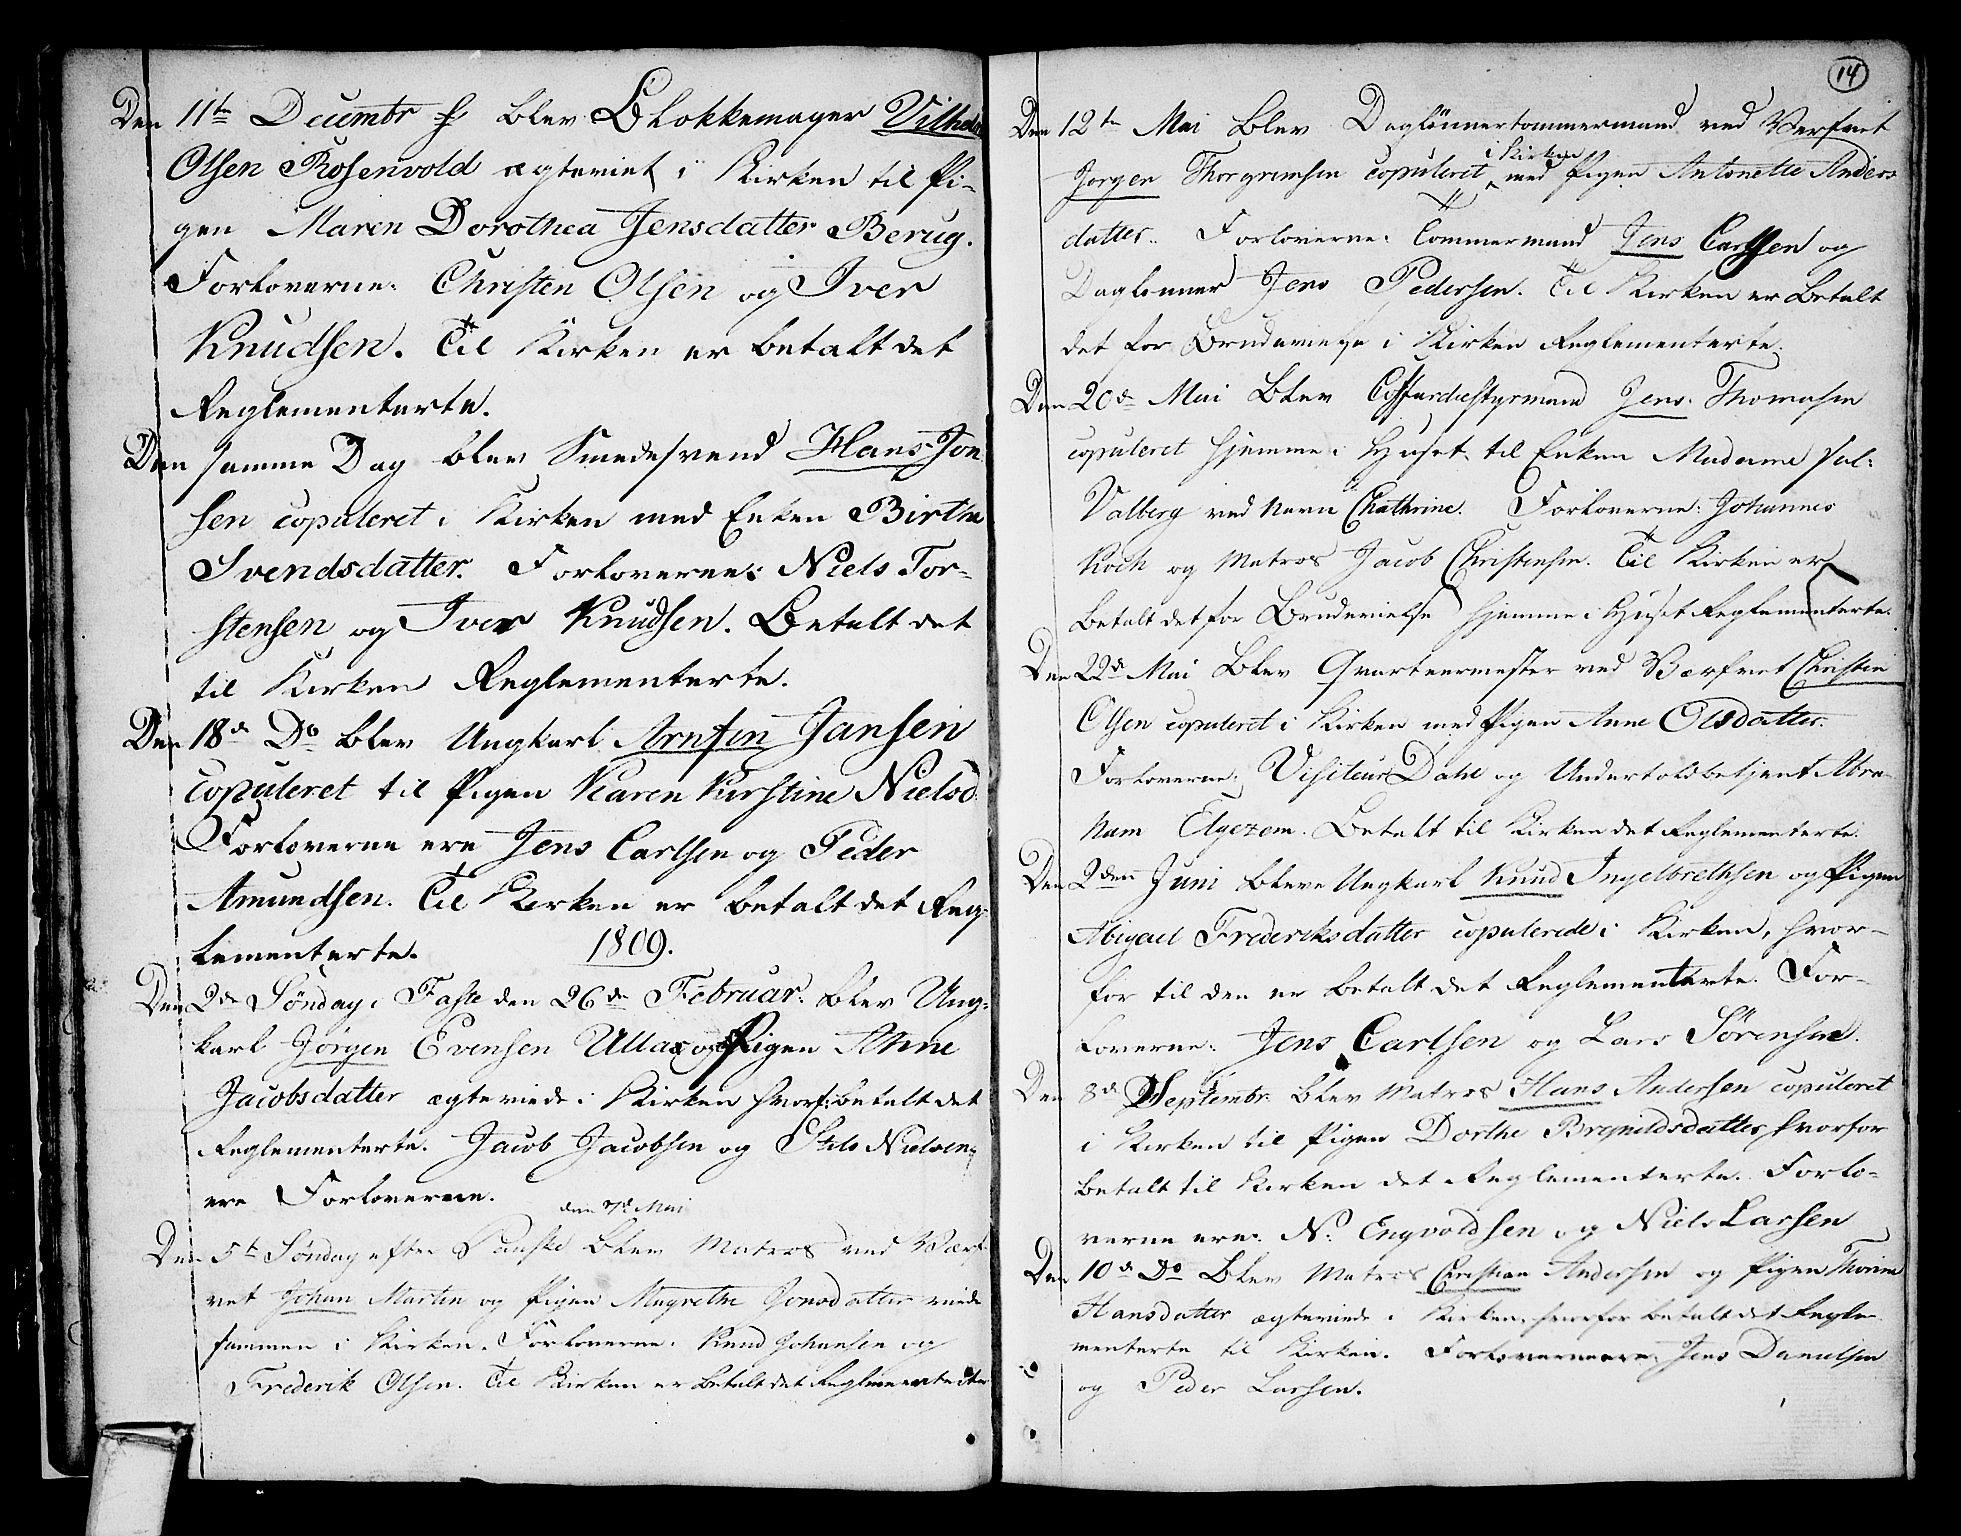 Den 11te Decembr blev Blokkemager Vilhelm
Olsen Rosenvold ægteviet i Kirken til Pi-
gen Maren Dorothea Jensdatter Berug.
Forloverne: Christen Olsen og Iver
Knudsen. Til Kirken er betalt det
Reglementerte.
Den samme Dag blev Smedesvend Hans Jon
sen copuleret i Kirken med Enken Birthe
Svendsdatter. Forloverne: Niels Tor-
stensen og Iver Knudsen. Betalt det
til Kirken Reglementerte.
Den 18de Do blev Ungkarl Arnfin Jansen
copuleret til Pigen Karen Kirstine Nielsd.
Forloverne ere Jens Carlsen og Peder
Amundsen. Til Kirken er betalt det Reg-
lementerte. 1809.
Den 2de Søndag i Faste den 26de Februar. blev Ung-
karl Jørgen Evensen Ullax og Pigen Anne
Jacobsdatter ægteviede i Kirken hvorf: betalt det
Reglementerte. Jacob Jacobsen og Nielsen
ere Forloverne.
den 7de Mai
Den 5te Søndag efter Paaske blev Matros ved Værf-
vet Johan Martin og Pigen Magrethe Jonsdatter viede
sammen i Kirken. Forloverne: Knud Johansen og
Frederik Olsen. Til Kirken er betalt det Reglementerte
14
Den 12te Mai blev Daglönnertømmermand ved Verfvet
i Kirken
Jørgen Thorgrimsen copuleret med Pigen Antonette Anders
datter. Forloverne: Tömmermand Jens Carlsen og
Daglönner Jens Pedersen. Til Kirken er betalt
det for Brudevielse i Kirken Reglementerte.
Den 20de Mai blev Coffardiestyrmand Jens Thomasen
copuleret hjemme i Huset til Enken Madame Sal:
Valberg ved Navn Chathrine. Forloverne: Johannes
Koch og Matros Jacob Christensen. Til Kirken er
betalt det for Brudevielse hjemme i Huset Reglementerte.
Den 22de Mai blev Qvarteermester ved Værfvet Christen
Olsen copuleret i Kirken med Pigen Anne Olsdatter.
Forloverne: Visiteur Dahl og Undertoldbetjent Abra-
ham Elgezem. Betalt til Kirken det Reglementerte.
Den 2den Juni bleve Ungkarl Knud Ingelbrethsen og Pigen
Abigael Frederiksdatter copulerede i Kirken, hvor-
for til den er betalt det Reglementerte. For-
loverne: Jens Carlsen og Lars Sørensen.
Den 8de Septembr. blev Matros Hans Andersen copuleret
i Kirken til Pigen Dorthe Brynildsdatter, hvorfor
betalt til Kirken det Reglementerte. Forlo-
verne ere: N. Engvoldsen og Niels Larsen
Den 10de Do blev Matros Christian Andersen og Pigen Thorine
Hansdatter ægteviede i Kirken, hvorfor betalt det Regle-
menterte til Kirken. Forloverne ere: Jens Danielsen
og Peder Larsen.